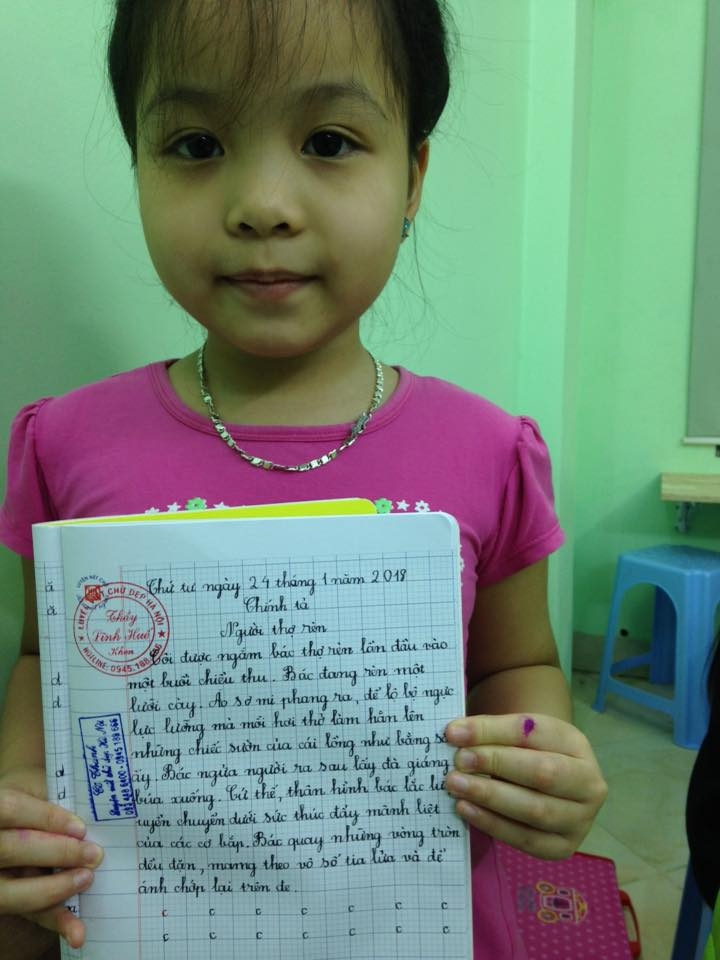 Thứ tư ngày 24 tháng 1 năm 2018
Chính tả
Người thợ rèn
Tôi được ngắm bác thợ rèn lần đầu vào
một buổi chiều thu. Bác đang rèn một
lưỡi cày. Áo sơ mi phang ra, để lộ bộ ngực
lực lưỡng mà mỗi hơi thở làm hằn lên
những chiếc sườn của cái lồng như bằng sắt
ấy. Bác ngửa người ra sau lấy đà giáng
búa xuống. Cứ thế, thân hình bác lắc lư
uyển chuyển dưới sức thúc đẩy mãnh liệt
của các cơ bắp. Bác quay những vòng tròn
đều đặn, mang theo vô số tia lửa và để
ánh chớp lại trên đe.
c c c c c c c
c c c c c c c
LUYỆN NÉT CHỮ ĐẸP HÀ NỘI
Thầy
Vĩnh Huế
Khen
HOTLINE: 0945.188.666
Cô Thanh
Luyện nét chữ đẹp Hà Nội
ă
ă
d
d
d
d